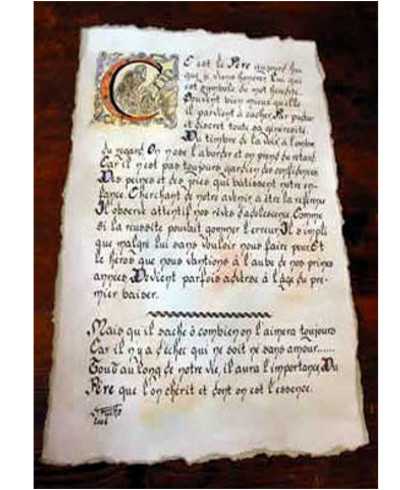 C'est le Père aujourd'hui
que je viens honorer Lui qui
est symbole du mot
Souvent bien mieux qu'elle
il parvient à cacher Par pudeur
et discret toute sa générosité.
Du timbre de la voix à l'ombre
du regard On n'ose l'aborder et on prend du retard
Car il n'est pas toujours gardien des confidences
Des peines et des joies qui bâtissent notre en-
fance. Cherchant de notre avenir à être la référence
Il observe attentif nos rêves d'adolescence Comme
si la réussite pouvait gommer l'erreur Il s'impli
que malgré lui sans vouloir nous faire peur Et
le héros que nous vantions à l'aube de nos primes
années Devient parfois adverse à l'âge du pre-
mier baiser.
Mais qu'il sache ô combien on l'aimera toujours
Car il n'y a d'échec qui ne soit né sans amour.....
Tout au long de notre vie, il aura l'importance Du
Père que l'on chérit et dont on est l'essence.